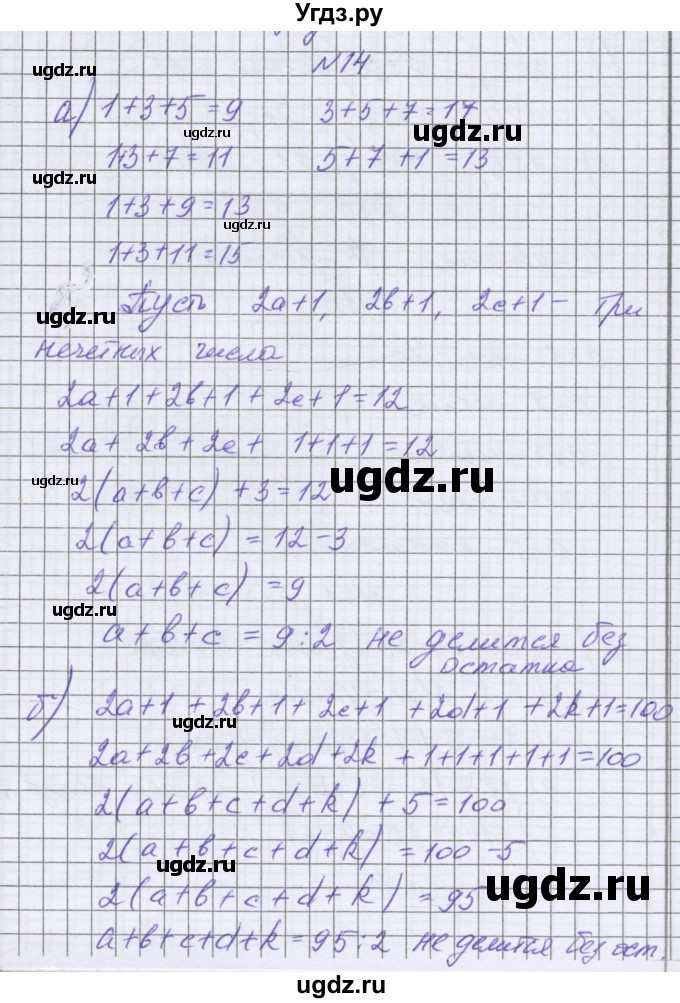 Угдз.ру
№14
а) 1+3+5=9 3+5+7=17
1+3+7=11 5+7+1=13
1+3+9=13
1+3+11=15
Пусть 2а+1, 2в+1, 2с+1 - три
нечетных числа
2а+1+2в+1+2с+1=12
2а+2в+2с+ 1+1+1=12
2(а+в+с)+3=12
2(а+в+с)=12-3
2(а+в+с)=9
а+в+с=9:2 не делится без
остатка
б) 2а+1+2в+1+2с+1+2d+1+2k+1=100
2а+2в+2с+2d+2k+1+1+1+1+1=100
2(а+в+с+d+k)+5=100
2(а+в+с+d+k)=100-5
2(а+в+с+d+k)=95
а+в+с+d+k=95:2 не делится без ост.
ugdz.ru
ugdz.ru
ugdz.ru
ugdz.ru
ugdz.ru
ugdz.ru
ugdz.ru
ugdz.ru
ugdz.ru
ugdz.ru
ugdz.ru
ugdz.ru
ugdz.ru
ugdz.ru